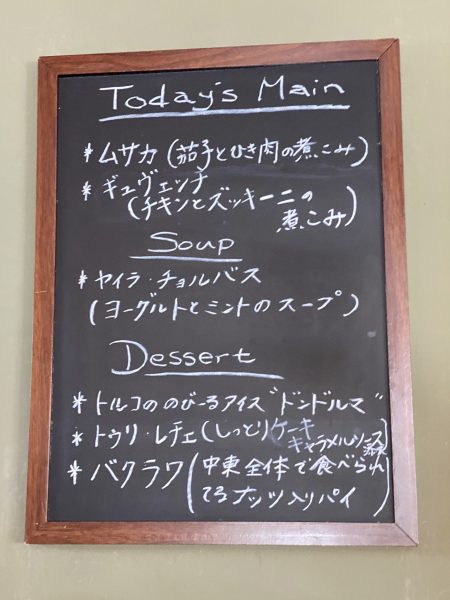 Today's Main
*ムサカ(茄子とひき肉の煮こみ)
*ギュヴェッチ
(チキンとズッキーニの
煮こみ)
Soup
*ヤイラ・チョルバス
(ヨーグルトとミントのスープ)
Dessert
*トルコののびーるアイス"ドンドルマ"
*トゥリ・レチェ(しっとりケーキ
キャラメルソース
*バクラワ(中東全体で食べられ
てるナッツ入りパイ